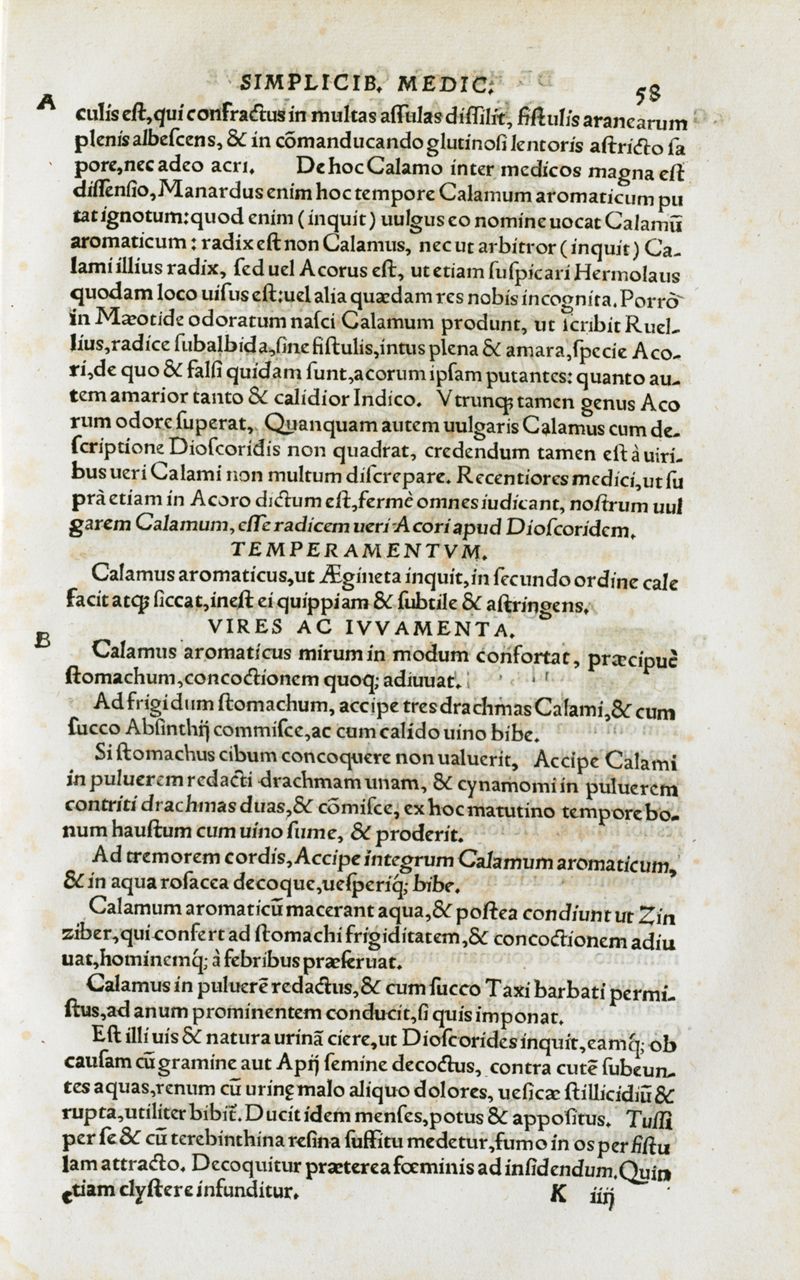 SIMPLICIB. MEDIC. 58
A
culis est, qui confractus in multas assulas dissilit, fistulis aranearum
plenis albescens, & in cōmanducando glutinosi lentoris astricto sa
pore, nec adeo acri. De hoc Calamo inter medicos magna est
dissensio, Manardus enim hoc tempore Calamum aromaticum pu
tat ignotum: quod enim (inquit) uulgus eo nomine uocat Calamū
aromaticum: radix est non Calamus, nec ut arbitror (inquit) Ca-
lami illius radix, sed uel Acorus est, ut etiam suspicari Hermolaus
quodam loco uisus est: uel alia quædam res nobis incognita. Porrò
in Mæotide odoratum nasci Calamum produnt, ut scribit Ruel-
lius, radice subalbida, sine fistulis, intus plena & amara, specie Aco-
ri, de quo & falsi quidam sunt, acorum ipsam putantes: quanto au-
tem amarior tanto & calidior Indico. Vtrunq; tamen genus Aco
rum odore superat. Quanquam autem uulgaris Calamus cum de-
scriptione Dioscoridis non quadrat, credendum tamen est à uiri-
bus ueri Calami non multum discrepare. Recentiores medici, ut su
prà etiam in Acoro dictum est, fermè omnes iudicant, nostrum uul
garem Calamum, esse radicem ueri Acori apud Dioscoridem.
TEMPERAMENTVM.
Calamus aromaticus, ut Ægineta inquit, in secundo ordine cale
facit atq; siccat, inest ei quippiam & subtile & astringens.
VIRES AC IVVAMENTA.
B
Calamus aromaticus mirum in modum confortat, præcipuè
stomachum, concoctionem quoq; adiuuat.
Ad frigidum stomachum, accipe tres drachmas Calami, & cum
succo Absinthij commisce, ac cum calido uino bibe.
Si stomachus cibum concoquere non ualuerit, Accipe Calami
in puluerem redacti drachmam unam, & cynamomi in puluerem
contriti drachmas duas, & cōmisce, ex hoc matutino tempore bo-
num haustum cum uino sume, & proderit.
Ad tremorem cordis, Accipe integrum Calamum aromaticum,
& in aqua rosacea decoque, uesperiq́; bibe.
Calamum aromaticū macerant aqua, & postea condiunt ut Zin
ziber, qui confert ad stomachi frigiditatem, & concoctionem adiu
uat, hominemq́; à febribus præseruat.
Calamus in puluerē redactus, & cum succo Taxi barbati permi-
stus, ad anum prominentem conducit, si quis imponat.
Est illi uis & natura urinā ciere, ut Dioscorides inquit, eamq́; ob
causam cū gramine aut Apij semine decoctus, contra cutē subeun-
tes aquas, renum cū urinę malo aliquo dolores, uesicæ stillicidiū &
rupta, utiliter bibit̃. Ducit idem menses, potus & appositus. Tussi
per se & cū terebinthina resina suffitu medetur, fumo in os per fistu
lam attracto. Decoquitur præterea fœminis ad insidendum. Quin
etiam clystere infunditur. K iiij